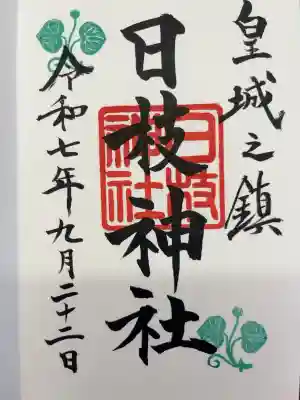 皇城之鎮
日枝神社
日枝
神社
令和七年九月二十二日